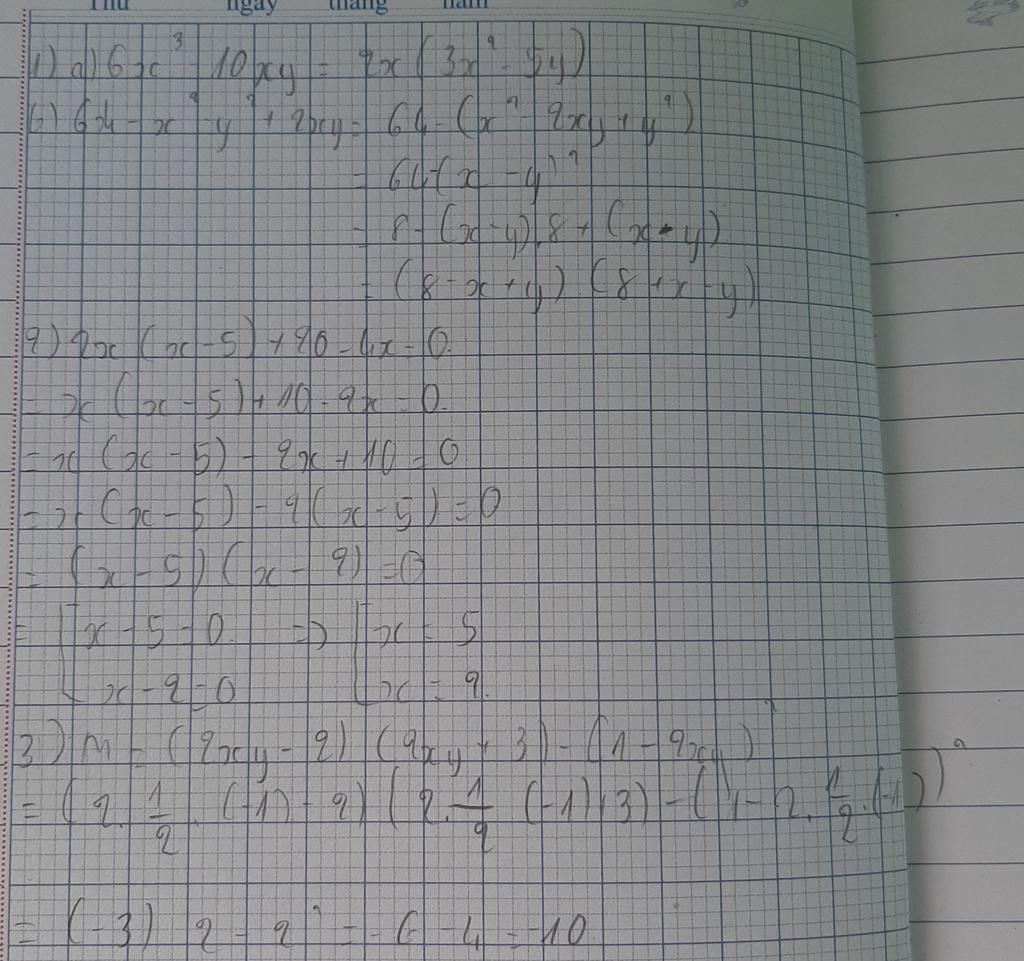 Thứ ngày tháng năm
1) a) 6x³ - 10xy = 2x(3x² - 5y)
b) 64 - x² - y² + 2xy = 64 - (x² - 2xy + y²)
= 64 - (x - y)²
= 8 - (x - y) . 8 + (x - y)
= (8 - x + y) (8 + x - y)
2) 2x (x - 5) + 20 - 4x = 0.
= x (x - 5) + 10 - 2x = 0.
= x (x - 5) - 2x + 10 = 0
= x (x - 5) - 2(x - 5) = 0
= (x - 5) (x - 2) = 0
= [x - 5 = 0 => [x = 5
x - 2 = 0 x = 2.
3) M = (2xy - 2) (2xy + 3) - (1 - 2xy)²
= (2. 1/2 . (-1) - 2) (2. 1/2 (-1) + 3) - (1 - 2. 1/2 . (-1))²
= (-3) 2 - 2² = -6 - 4 = -10